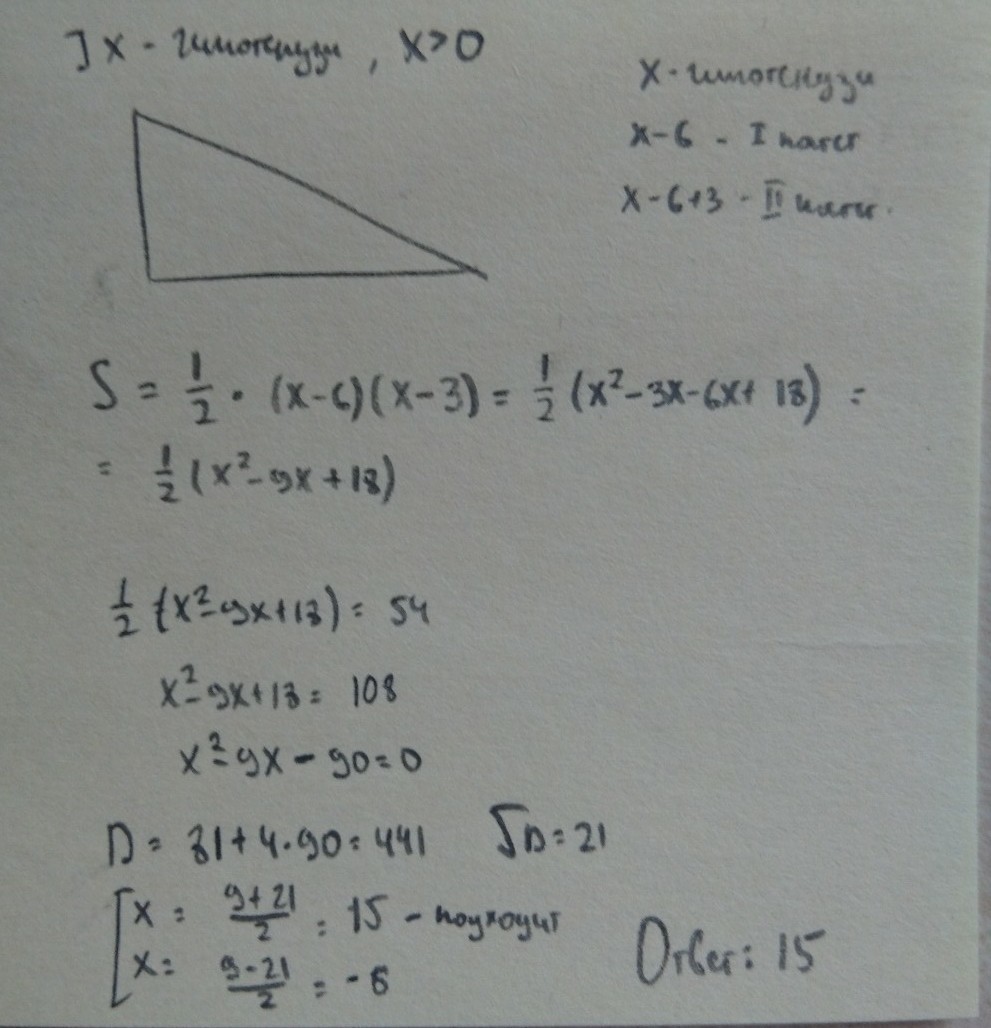 ] x - гипотенуза, x>0
x - гипотенуза
x-6 - I катет
x-6+3 - II катет.
S = 1/2 · (x-6)(x-3) = 1/2 (x²-3x-6x+18) =
= 1/2 (x²-9x+18)
1/2 (x²-9x+18) = 54
x²-9x+18 = 108
x²-9x-90=0
D = 81+4·90=441 √D=21
[x = (9+21)/2 = 15 - подходит
x = (9-21)/2 = -6
Ответ: 15